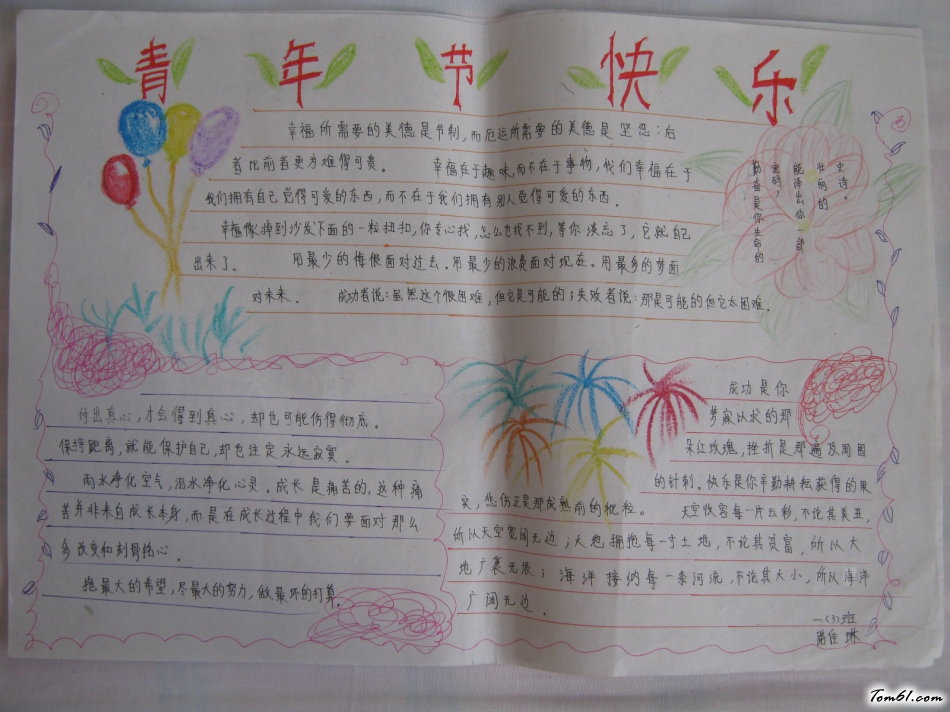 青年节快乐
幸福所需要的美德是节制，而厄运所需要的美德是坚忍：后
者比前者更为难得可贵。 幸福在于趣味，而不在于事物，我们幸福在于
我们拥有自己觉得可爱的东西，而不在于我们拥有别人觉得可爱的东西。
幸福像掉到沙发下面的一粒扭扣，你专心找，怎么也找不到，等你淡忘了，它就自己
出来了。 用最少的悔恨面对过去。用最少的浪费面对现在。用最多的梦面
对未来、 成功者说：虽然这个很困难，但它是可能的了失败者说：那是可能的但它太困难。
勤奋是你生命的
密码，
能译出你一部
壮丽的
史诗。
付出真心，才会得到真心，却也可能伤得彻底。
保持距离，就能保护自己，却也注定永远寂寞。
雨水净化空气，泪水净化心灵。成长是痛苦的，这种痛
苦并非来自成长本身，而是在成长过程中我们要面对那么
多改变和刺骨铭心。
抱最大的希望，尽最大的努力，做最坏的打算。
成功是你
梦寐以求的那
朵红玫瑰，挫折是那遍及周围
的针刺。快乐是你辛勤耕耘获得的果
实，悲伤正是那成熟前的秕粒。 天空收容每一片云彩，不论其美丑，
所以天空宽阔无边；大地拥抱每一寸土地，不论其贫富，所以大
地广袤无垠；海洋接纳每一条河流，不论其大小，所以海洋
广阔无边．
一（3）班
路佳琳
Tom61.com